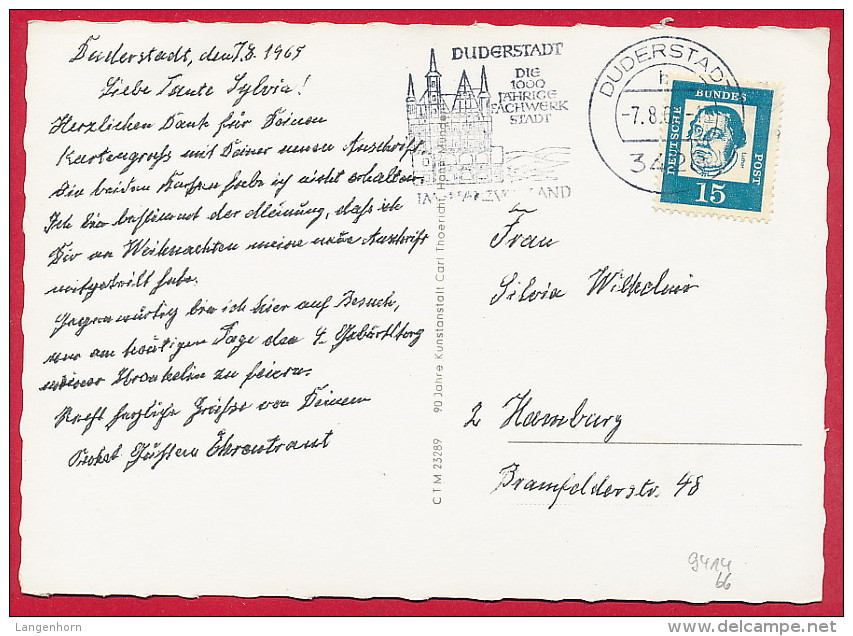 Duderstadt, den 7.8.1965
Liebe Tante Sylvia!
Herzlichen Dank für Deinen
Kartengruß mit Deiner neuen Anschrift.
Die beiden Karten habe ich nicht erhalten.
Ich bin bestimmt der Meinung, daß ich
Dir an Weihnachten meine neue Anschrift
mitgeteilt habe.
Gegenwärtig bin ich hier auf Besuch,
um am heutigen Tage den 4. Gebürtstag
meiner Urenkelin zu feiern.
Recht herzliche Grüße von Deinem
Ehrentraut
DUDERSTADT
DIE
1000
JÄHRIGE
FACHWERK
STADT
IM HARZVORLAND
DUDERSTADT
h
-7.8.6
342
DEUTSCHE BUNDESPOST
Luther
15
Frau
Silvia Wilhelmi
2 Hamburg
Bramfelderstr. 48
CTM 23289 90 Jahre Kunstanstalt Carl Thoericht, Hann. Münden
9414
66
Langenhorn